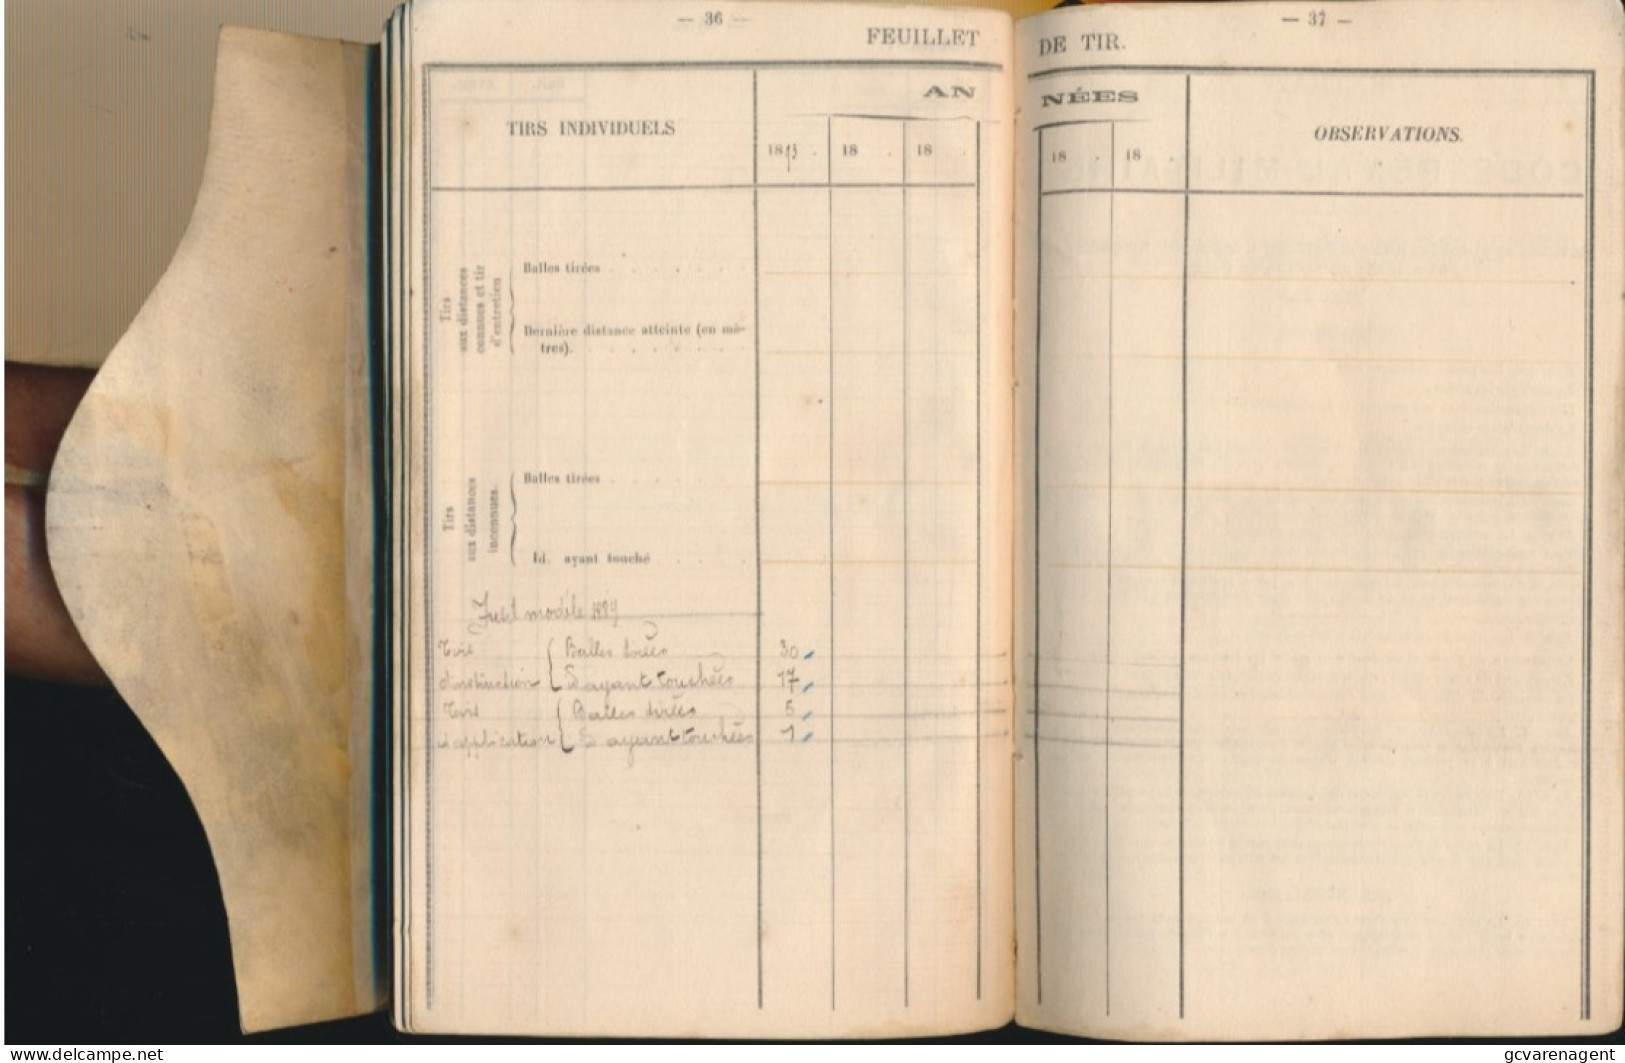 — 36 —
FEUILLET
TIRS INDIVIDUELS
AN
18 .
18 .
18 .
Tirs
aux distances
connues et tir
d'entretien
Balles tirées . . . . . . .
Dernière distance atteinte (en mè-
tres). . . . . . . . .
Tirs
aux distances
inconnues.
Balles tirées . . . . . . .
Id. ayant touché . . . . .
Fusil modèle 1889
Tirs
d'instruction
Balles tirées 30
ayant touchées 17
Tirs
d'application
Balles tirées 5
ayant touchées 1
— 37 —
DE TIR.
NÉES
18 .
18 .
OBSERVATIONS.
www.delcampe.net
gcvarenagent